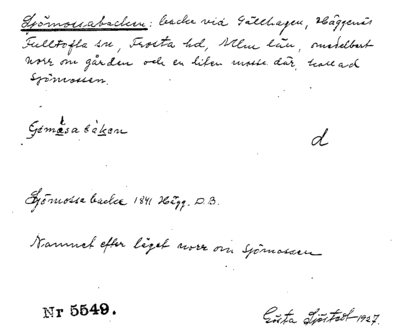 Sjömossabacken: backe vid Gällhagen, Häggenäs
Fulltofta sn, Frosta hd, Mlm län, omedelbart
norr om gården och en liten mosse där, kallad
Sjömossen.
d
Sjömosse backe 1841 Hägg. D.B.
Namnet efter läget norr om Sjömossen
Nr 5549.
Gösta Sjöstedt 1927.